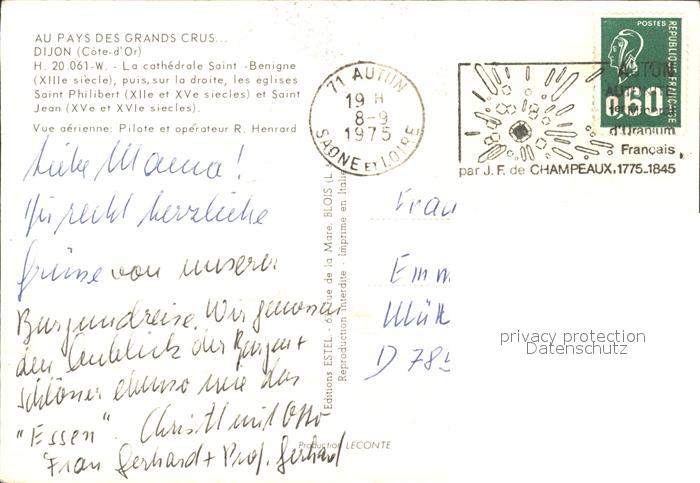 AU PAYS DES GRANDS CRUS...
DIJON (Côte-d'Or)
H. 20.061-W. - La cathédrale Saint-Benigne
(XIIIe siècle), puis, sur la droite, les églises
Saint Philibert (XIIe et XVe siecles) et Saint
Jean (XVe et XVIe siecles).
Vue aérienne: Pilote et opérateur R. Henrard
Liebe Mama!
recht herzliche
Grüsse von unserer
Burgundreise. Wir genossen
den Anblick der Burgen +
Schlösser ebenso wie das
"Essen". Christl und Otto
Frau Gerhard + Prof. Gerhard
Editions ESTEL - 6, rue de la Mare. BLOIS (L.
Reproduction interdite - Imprimé en Italie
Production LECONTE
71 AUTUN
19 H
8-9
1975
SAONE ET LOIRE
POSTES
REPUBLIQUE FRANÇAISE
0,60
d'Uranium
Français
par J.F. de CHAMPEAUX. 1775-1845
Frau
Emm
D 785
privacy protection
Datenschutz